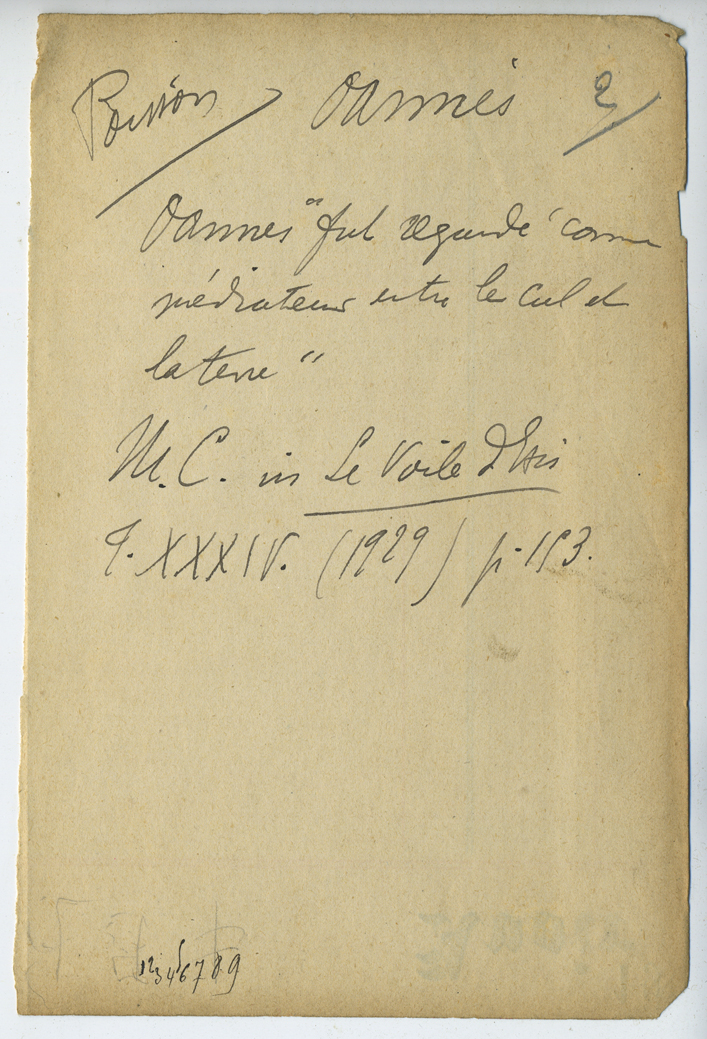 Poisson Oannès 2/
Oannes "fut regardé comme
médiateur entre le ciel et
la terre"
M. C. in Le Voile d'Isis
T. XXXIV. (1929) p. 193.
123456789